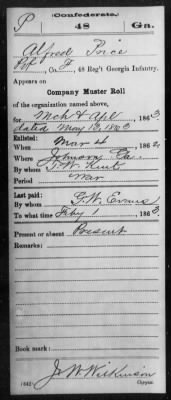 Confederate.
P 48 Ga.
Alfred Price
Pvt, Co. F, 48 Reg't Georgia Infantry.
Appears on
Company Muster Roll
of the organization named above,
for Mch & Apl, 1863
dated May 13, 1863
Enlisted:
When Mar 4, 1862
Where Johnson Co.
By whom T. W. Kent
Period War
Last paid:
By whom G. W. Evans
To what time Feby 1, 1863
Present or absent Present
Remarks:
Book mark:
J. W. Wilkinson
(642) Copyist.